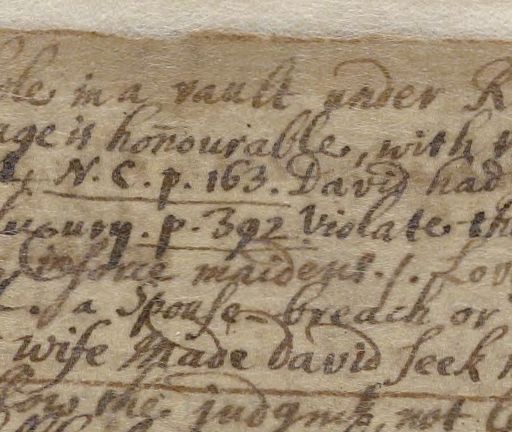 in a vault under R
age is honourable, with t
N. C. p. 163. David had
uxury. p. 392 Violate th
maidens. /. Lov
. a Spouse breach or
wife Made David seek
the judgmt, not